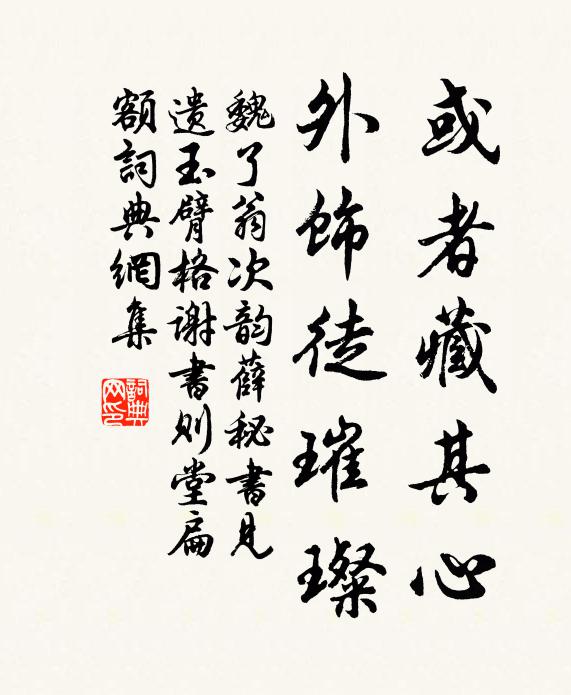 或者藏其心
外饰徒璀璨
魏了翁次韵薛秘书见
遗玉臂格谢书则堂扁
额詞典網集
詞典
网印